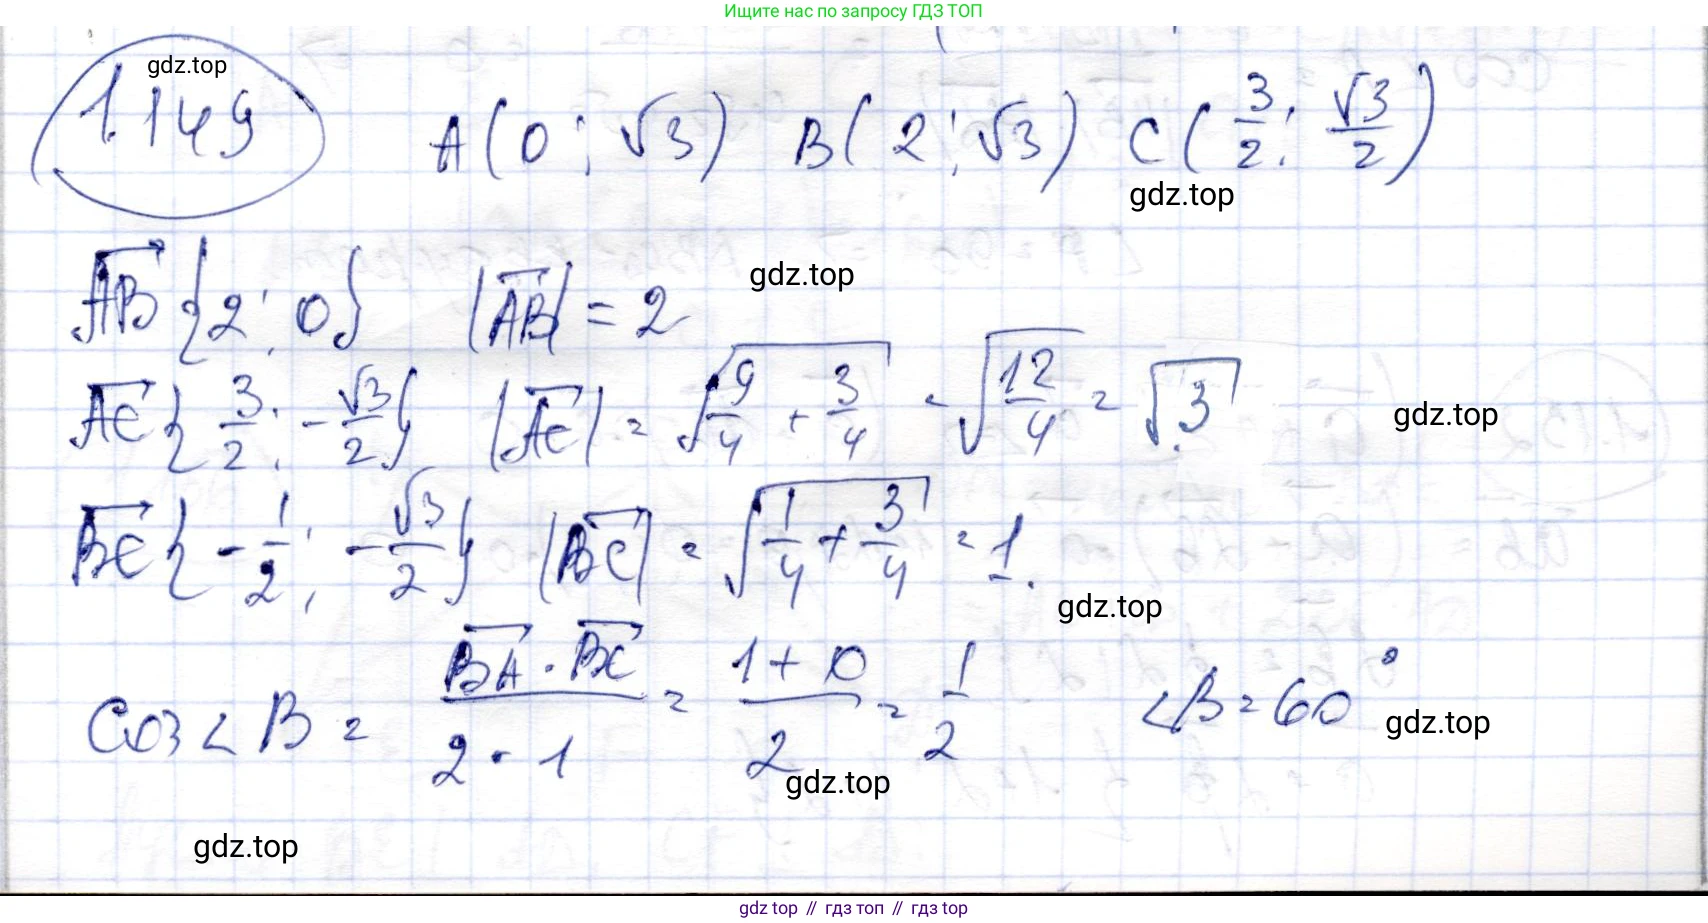 Ищите нас по запросу ГДЗ ТОП
gdz.top
1.149 A(0; √3) B(2; √3) C(3/2; √3/2)
gdz.top
AB {2; 0} |AB| = 2
gdz.top
AC {3/2; -√3/2} |AC| = √(9/4 + 3/4) = √(12/4) = √3.
gdz.top
BC {-1/2; -√3/2} |BC| = √(1/4 + 3/4) = 1.
gdz.top
Cos < B = (BA · BC)/(2 · 1) = (1 + 0)/2 = 1/2 <B = 60°
gdz.top
gdz.top
gdz.top
gdz top // гдз топ // гдз top